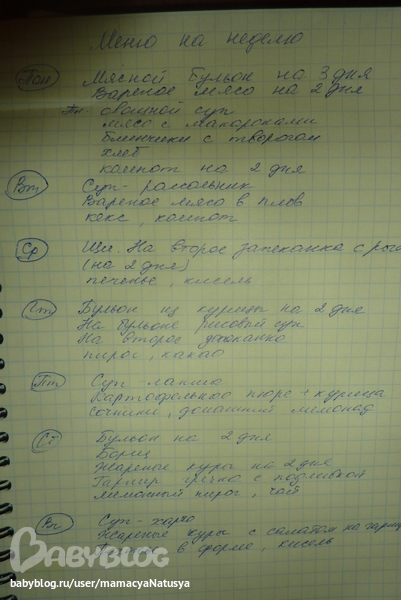 Меню на неделю
Пон Мясной бульон на 3 дня
Вареное мясо на 2 дня
Пн. овощной суп
мясо с макаронами
блинчики с творогом
хлеб
компот на 2 дня
Вт Суп - рассольник
Вареное мясо в плов
кекс, компот
Ср Щи. На второе запеканка с рыб
(на 2 дня)
печенье, кисель
Чт Бульон из курицы на 2 дня
На бульоне рисовый суп
На второе
пирог, какао
Пт Суп - лапша
Картофельное пюре + курица
сочники, домашний лимонад
Сб Бульон на 2 дня
Борщ
Жареные куры на 2 дня
Гарнир греча с подливкой
лимонный пирог, чай
Вс Суп - харчо
Жареные куры с салатом на гарнир
в форме, кисель
BABYBLOG
babyblog.ru/user/mamacyaNatusya